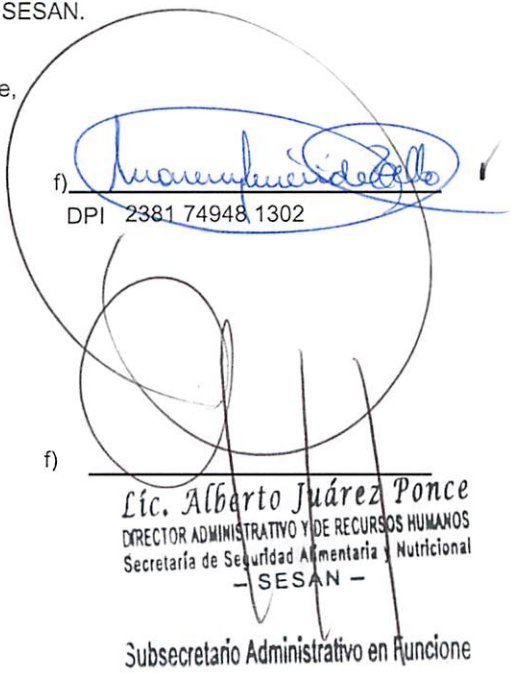 SESAN.
e,
f)
DPI 2381 74948 1302
f)
Lic. Alberto Juárez Ponce
DIRECTOR ADMINISTRATIVO Y DE RECURSOS HUMANOS
Secretaría de Seguridad Alimentaria y Nutricional
– SESAN –
Subsecretario Administrativo en Funcione